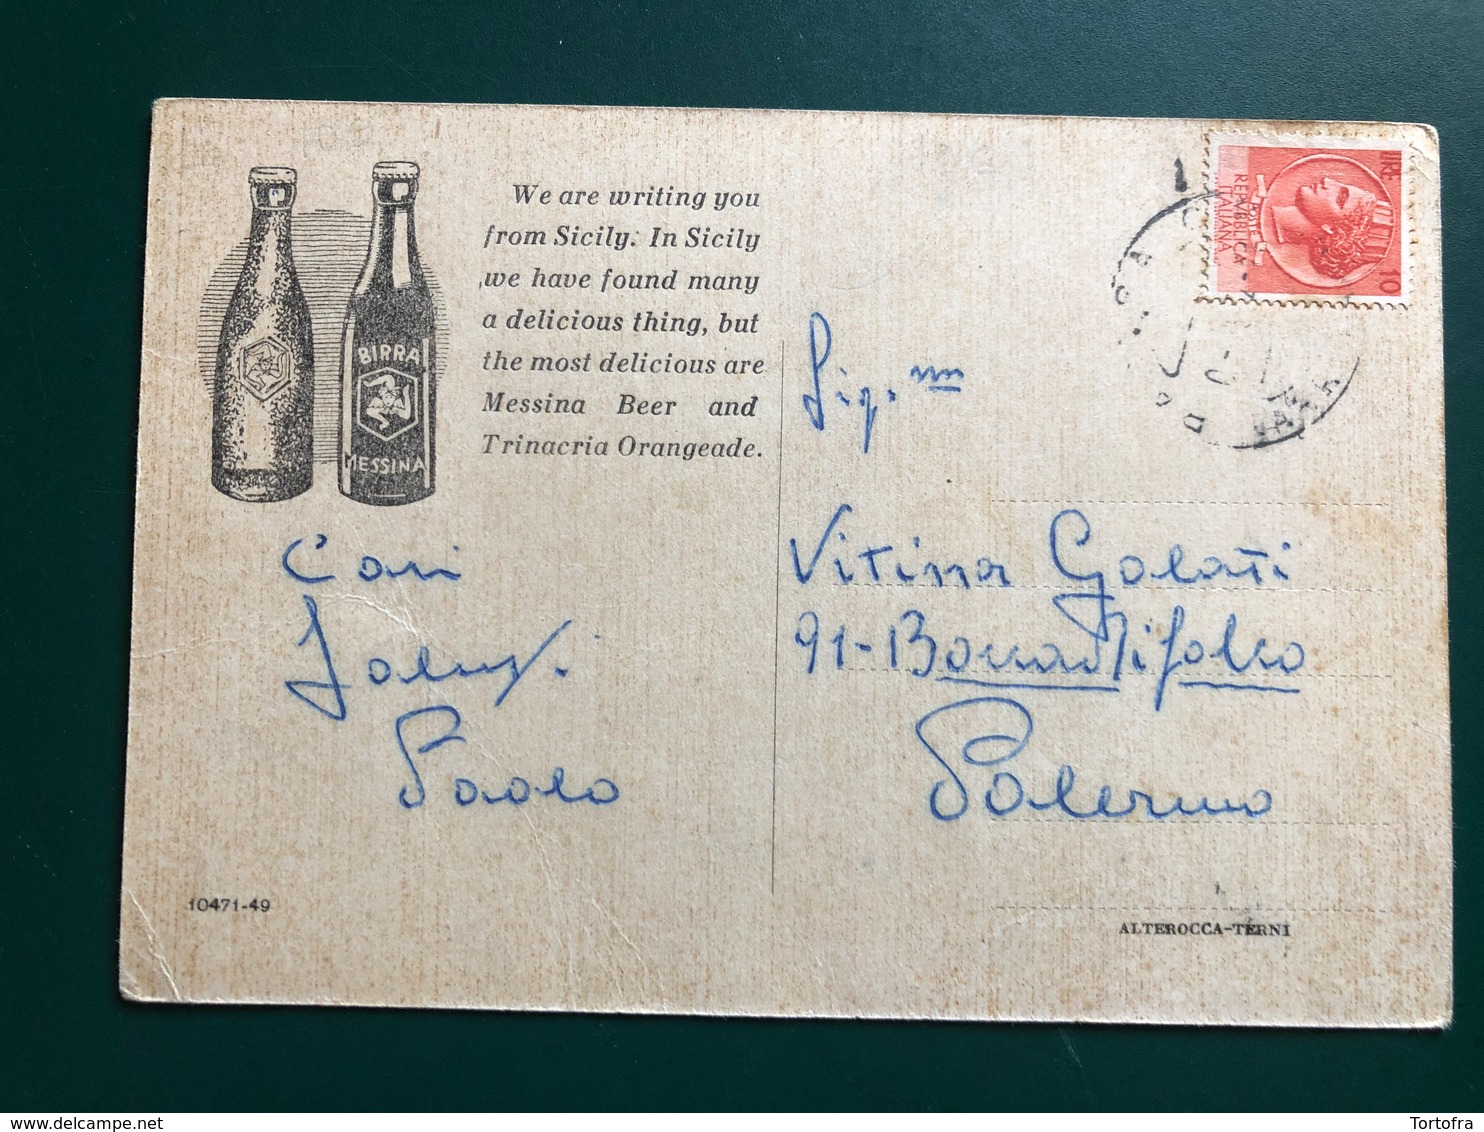 We are writing you
from Sicily. In Sicily
we have found many
a delicious thing, but
the most delicious are
Messina Beer and
Trinacria Orangeade.
BIRRA
MESSINA
Cari
Paolo
10471-49
LIRE 10
REPUBBLICA
ITALIANA
Vitina Galati
91-Boccadifalco
Palermo
ALTEROCCA-TERNI
delcampe.net
Tortofra